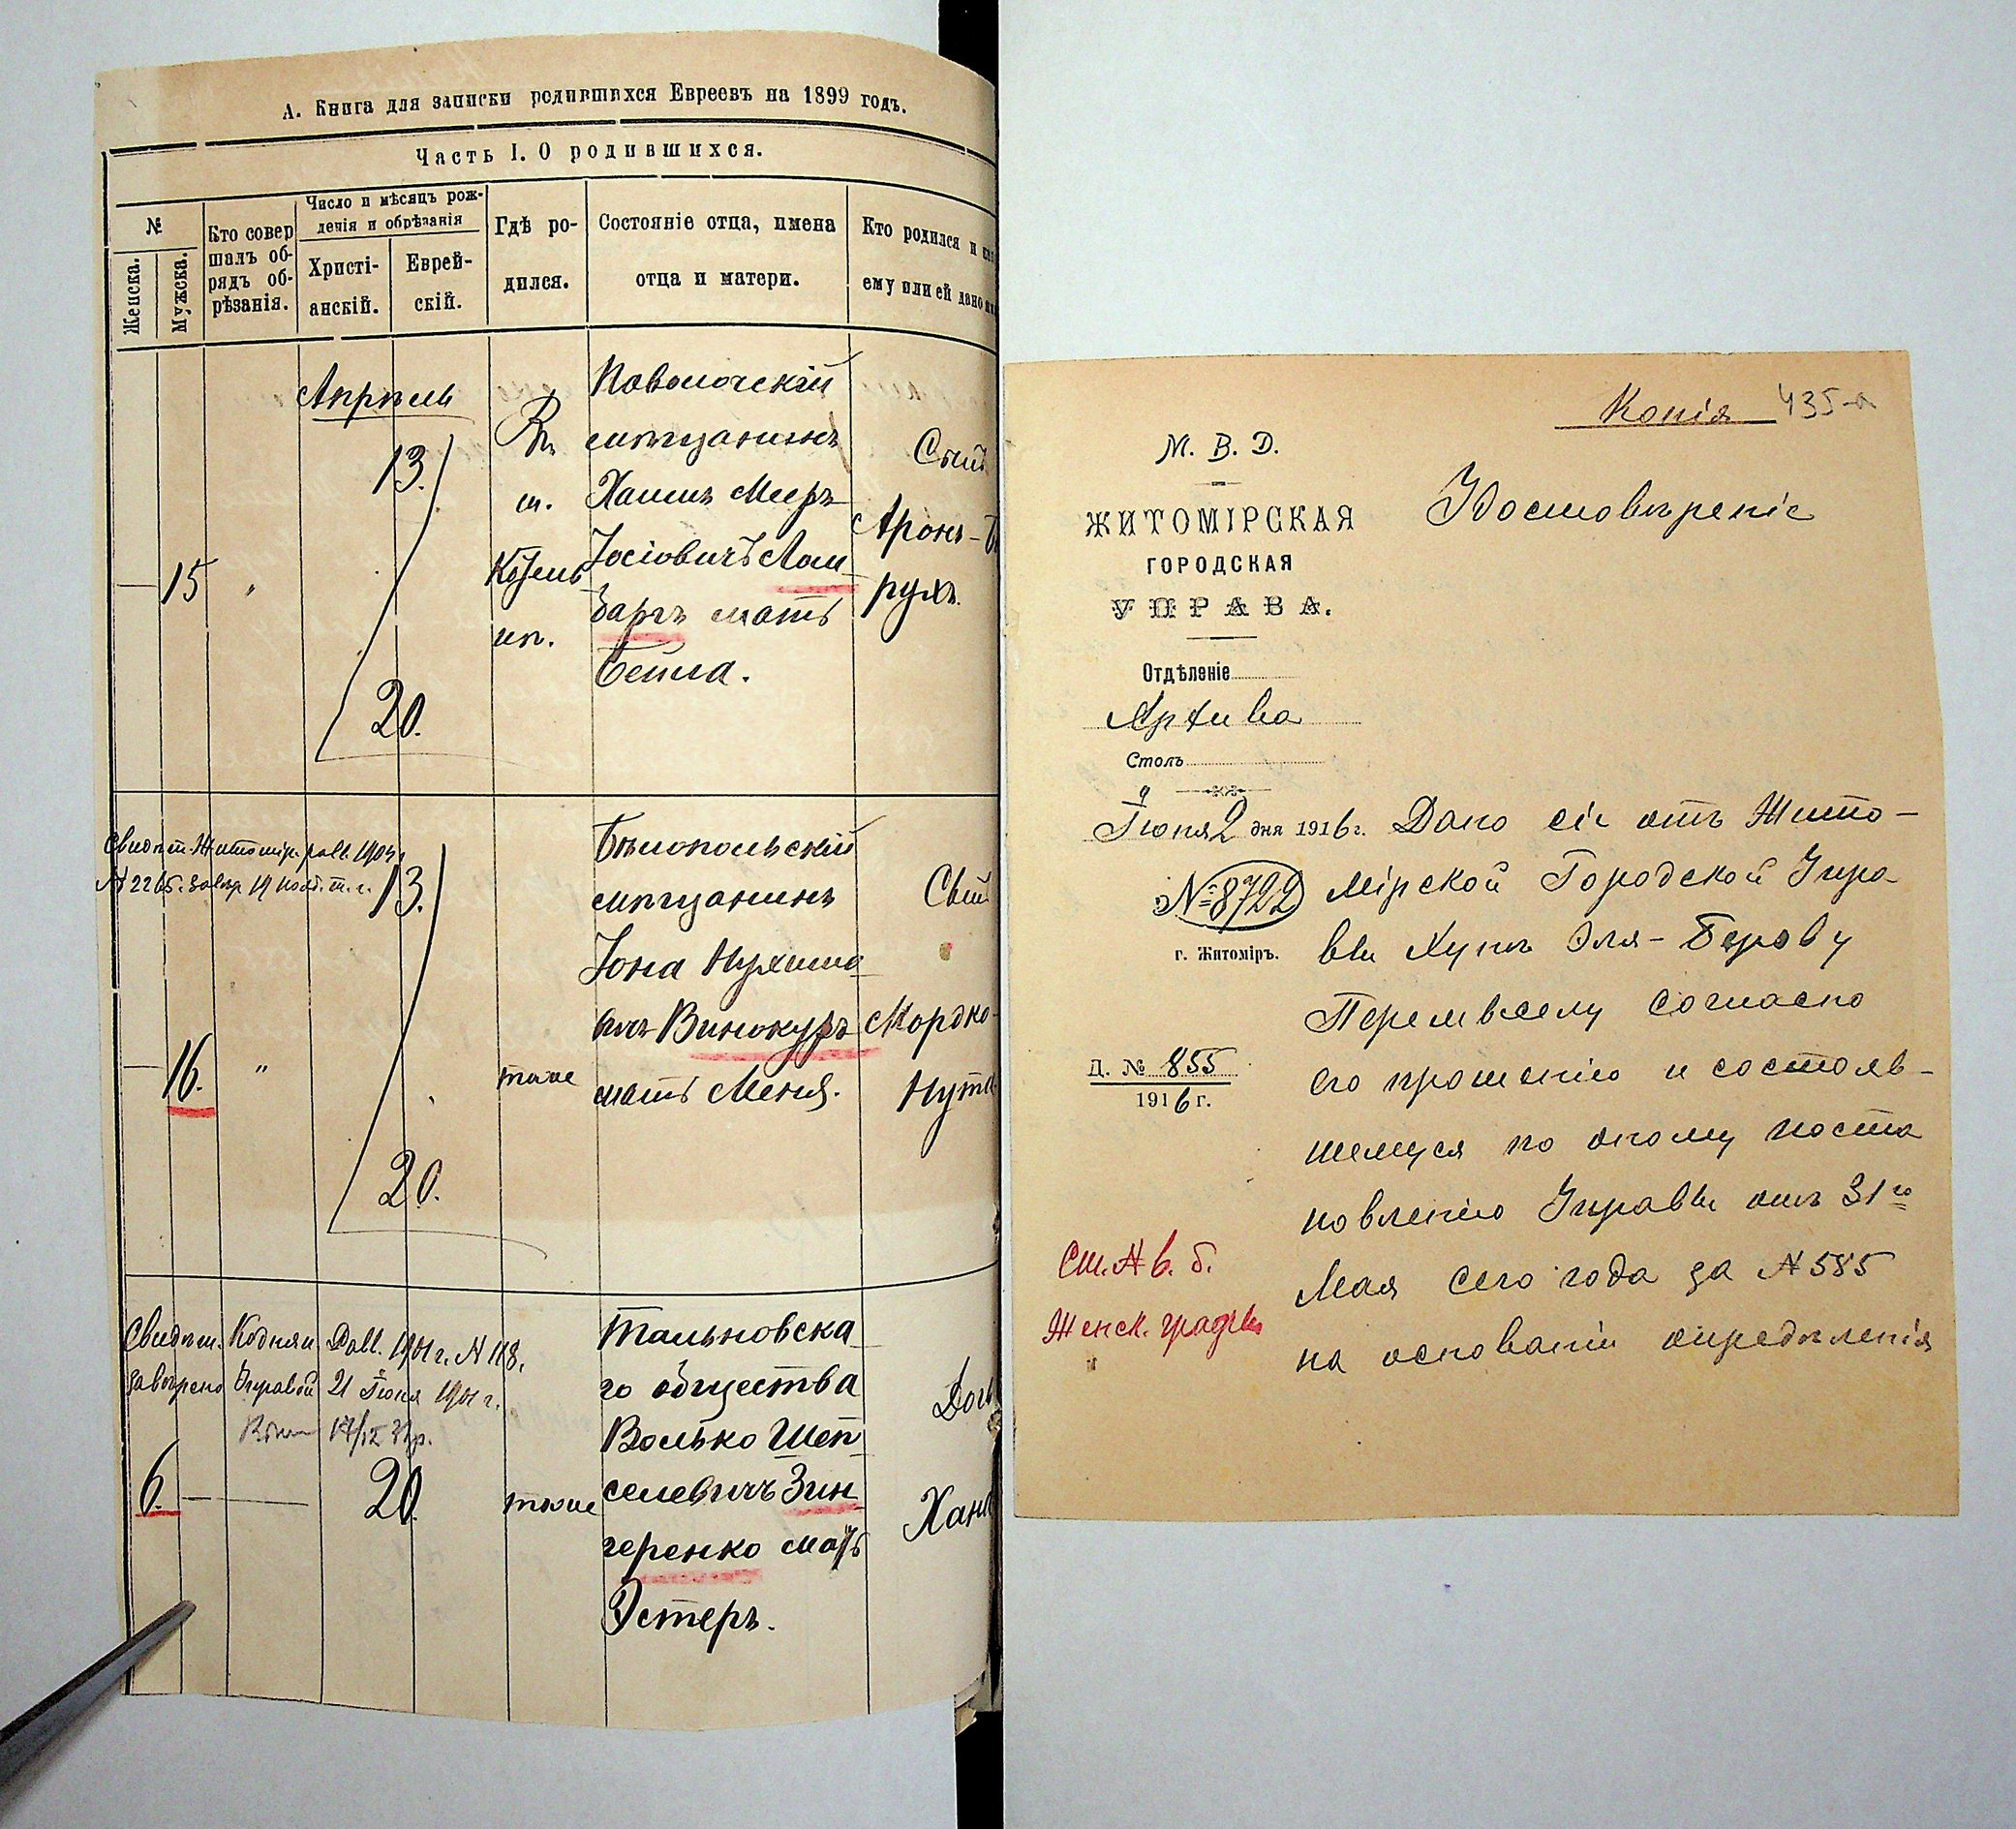 А. Книга для записки родившихся Евреевъ на 1899 годъ.
Часть I. О родившихся.
№
Женска.
Мужска.
Кто совер
шалъ об-
рядъ об-
рѣзанія.
Число и мѣсяцъ рож-
денія и обрѣзанія
Христі-
анскій.
Еврей-
скій.
Гдѣ ро-
дился.
Состояніе отца, имена
отца и матери.
Кто родился и
ему или ей дано
Апрѣль
15
"
13.
20.
Въ
м.
нѣ.
Паволочскій
мѣщанинъ
Хаимъ Меръ
Іосіовичъ Лом
барть мать
Бейла.
Сынъ
Аронъ-Б
рухъ.
Свидѣт. Житомір. равв.
N 2265.
16.
"
13.
20.
тоже
Бѣлопольскій
мѣщанинъ
Іона Нухимо
вичъ Винокуръ
мать Меня.
Мордко-
Нута
Свидѣт. Коднян. Равв. 1901 г. N 118.
завѣрено Управой 21 Іюня 1901 г.
6.
20.
тоже
Тальновска
го общества
Волько Шеп
селевичъ Зин
геренко мать
Эстеръ.
Доч
Хан
Копія 435-а
М. В. Д.
ЖИТОМІРСКАЯ
ГОРОДСКАЯ
УПРАВА.
Отдѣленіе
Архива
Столъ
Іюня 2 дня 1916 г.
№ 8722
г. Житоміръ.
Д. № 855
1916 г.
См. N в. б.
Женск. графы
Удостовѣреніе
Дано сіе отъ Жито-
мірской Городской Упра-
вы Хунъ Эля-Берову
Перемвселу согласно
его прошенію и состояв-
шемуся по оному поста
новленію Управы отъ 31го
Мая сего года за N 585
на основаніи опредѣленія